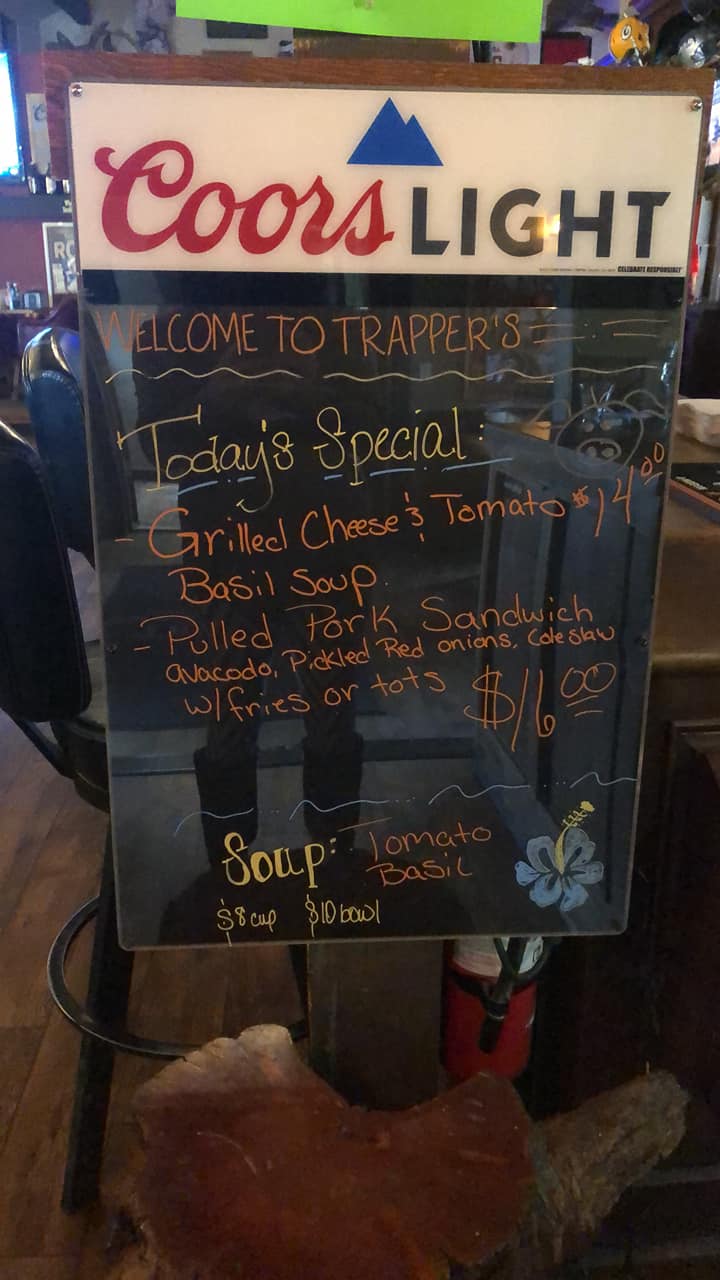 Coors LIGHT
CELEBRATE RESPONSIBLY
WELCOME TO TRAPPER'S
Today's Special:
- Grilled Cheese & Tomato $14.00
Basil Soup.
- Pulled Pork Sandwich
avacodo, Pickled Red onions, Coleslaw
w/fries or tots $16.00
Soup: Tomato
Basil
$8 cup $10 bowl